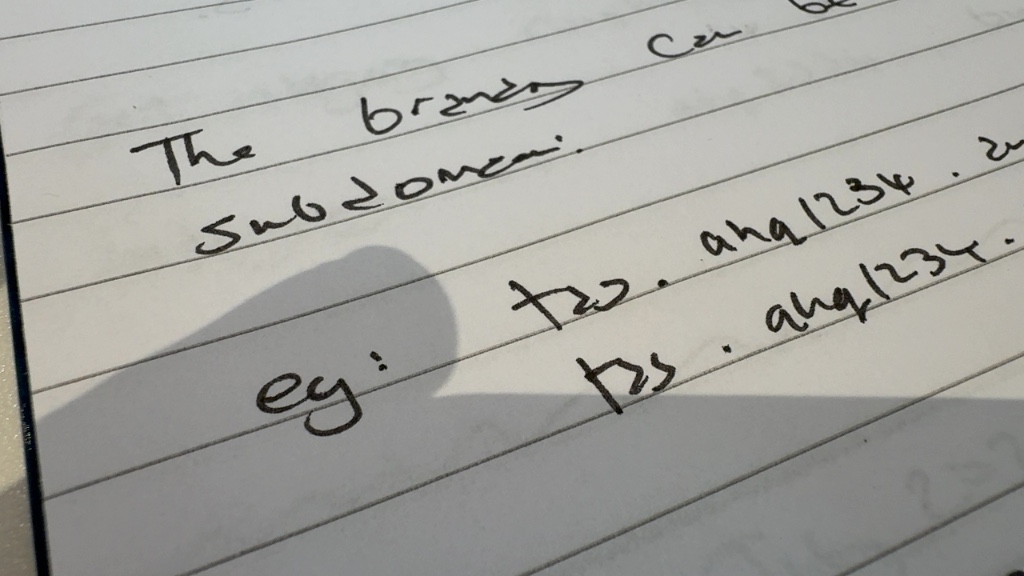 The brands can be
subdomain.
eg: . ahq1234.
. ahq1234.